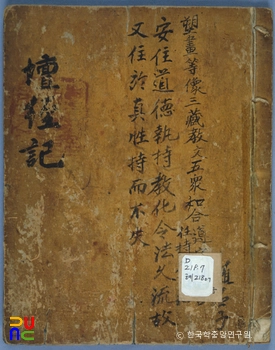 塑畫等像三藏教文五衆和合
住持
安住道德執持教化令法久流故
又住於真性持而不失
壇經記
D
21P.7
© 한국학중앙연구원